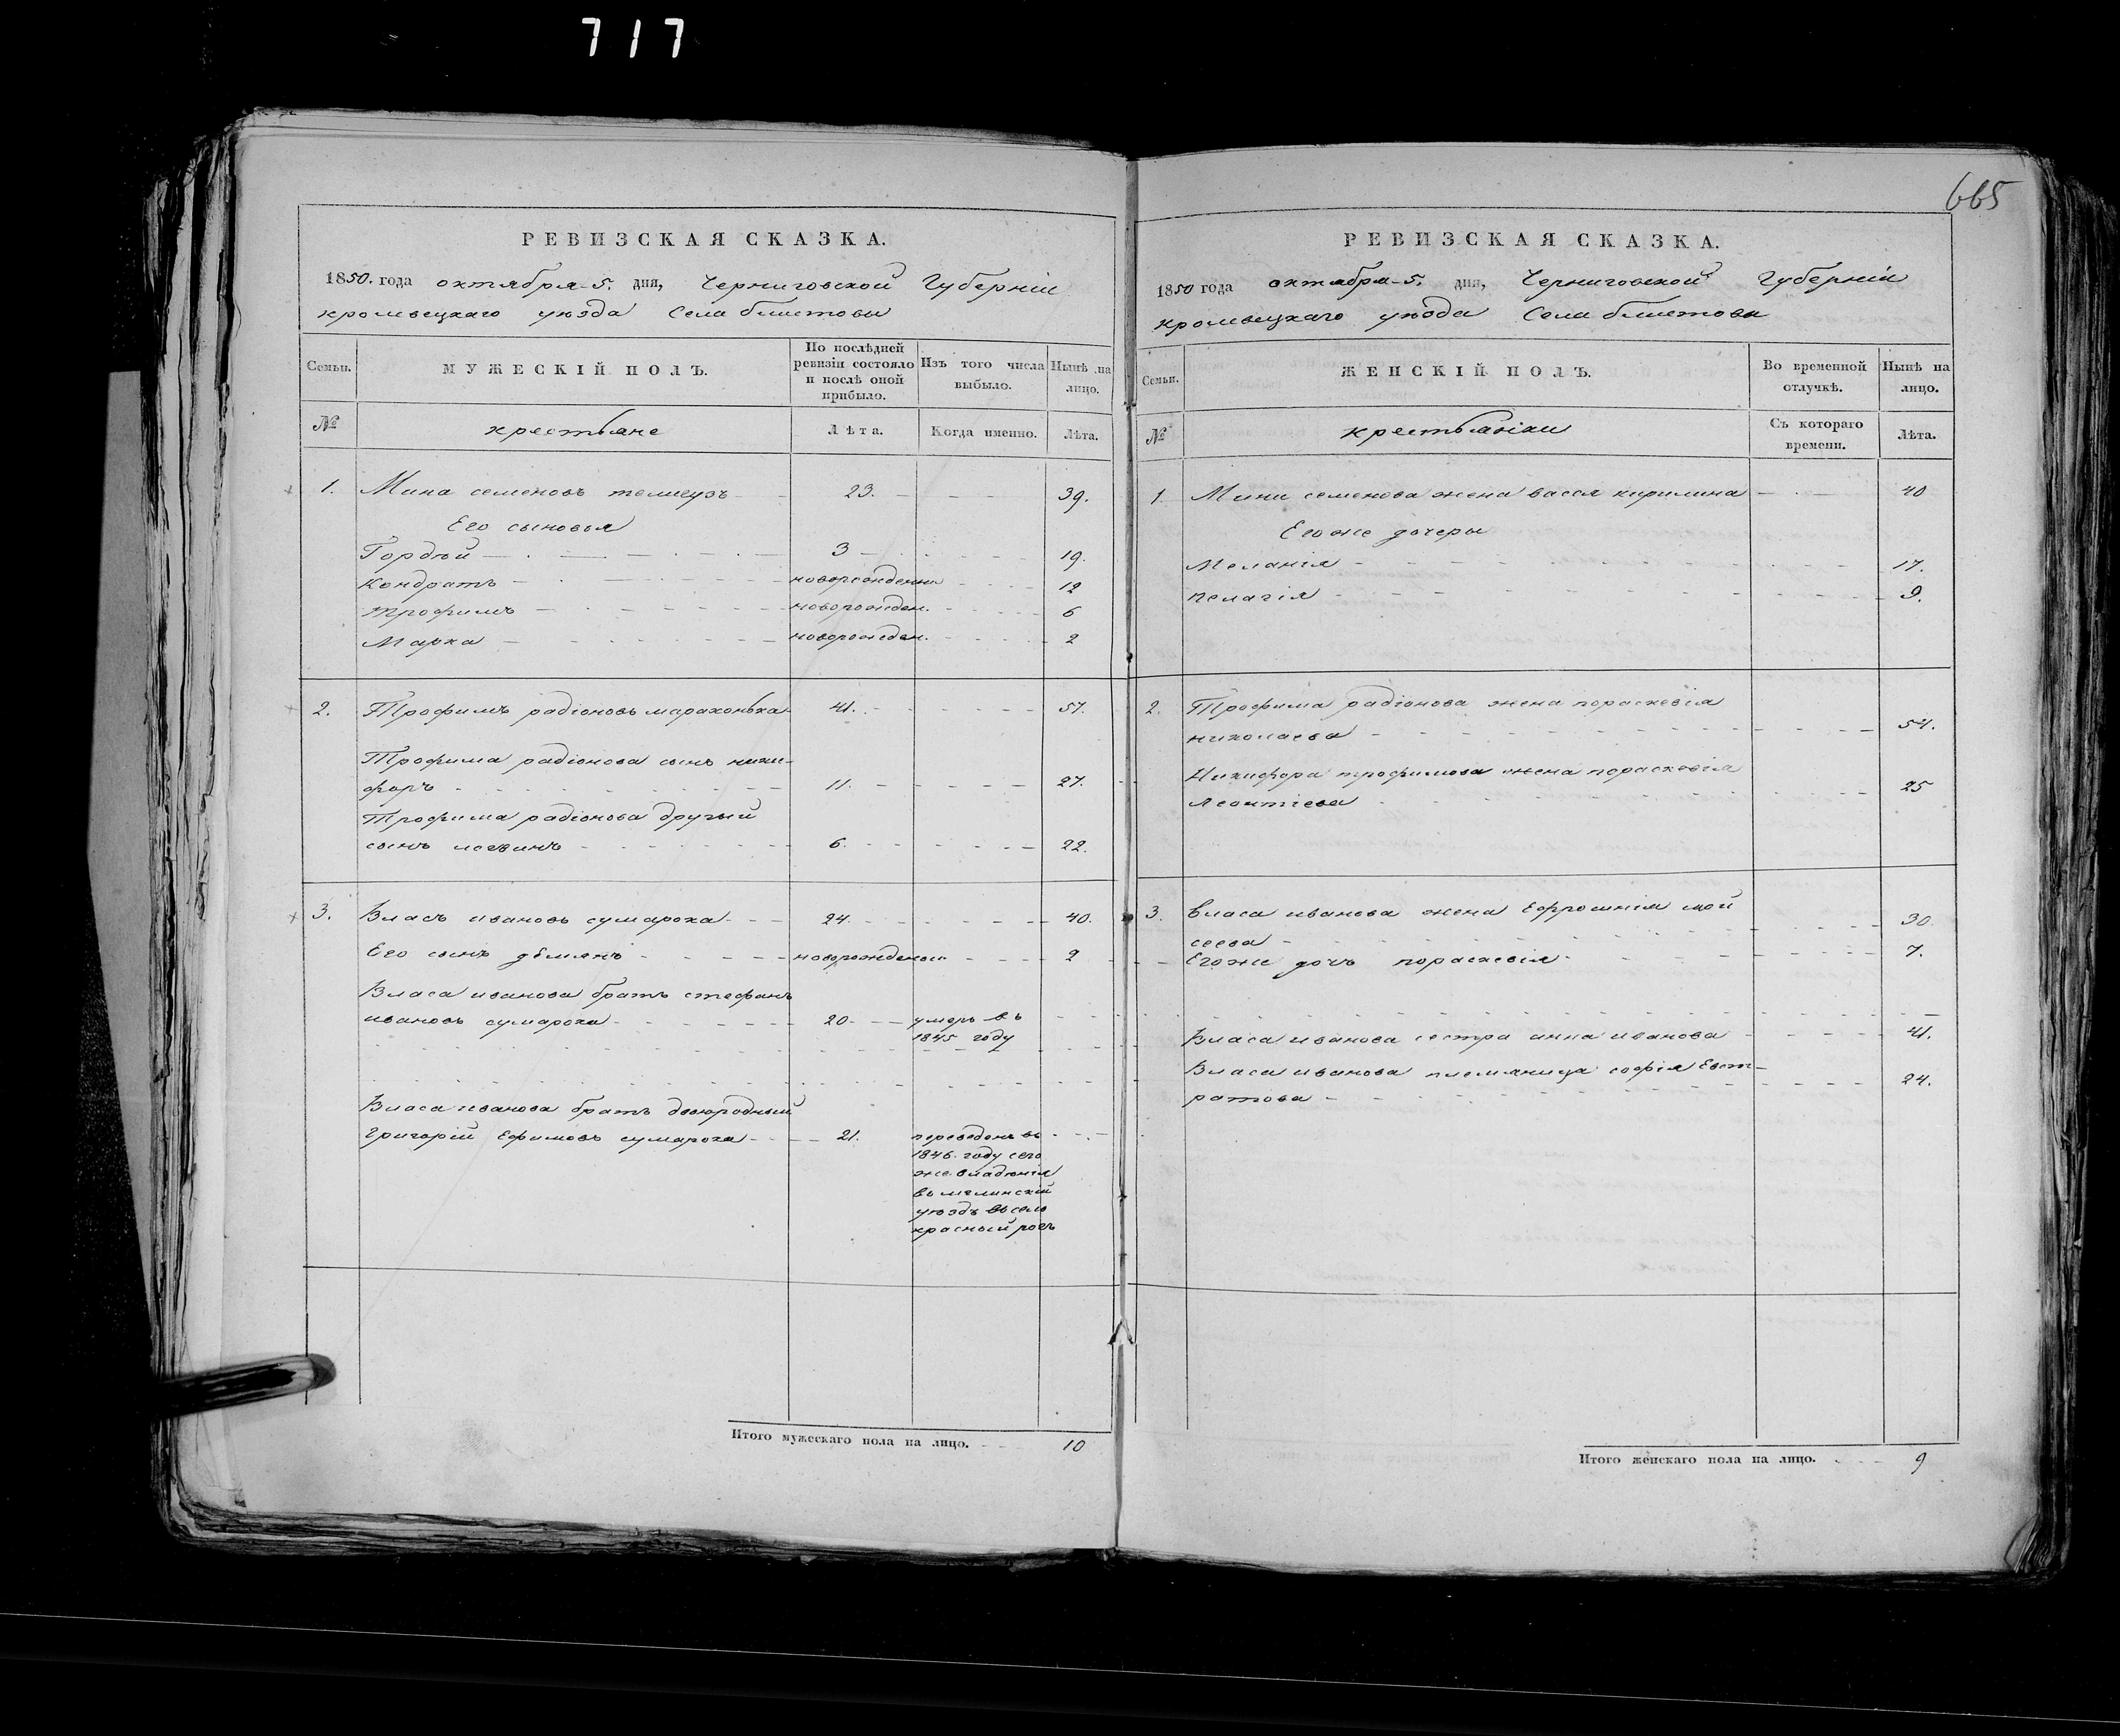 717
665
РЕВИЗСКАЯ СКАЗКА.
1850. года октября 5. дня, Черниговской Губерніи
кролевецкаго уѣзда Села блистовы
Семьи. МУЖЕСКІЙ ПОЛЪ. По послѣдней ревизіи состояло и послѣ оной прибыло. Изъ того числа выбыло. Нынѣ на лицо.
№ крестьяне Лѣта. Когда именно. Лѣта.
1. Мина семеновъ 23. 39.
Его сыновья
Гордѣй 3 19.
Кондратъ новорожденны 12
трофимъ новорожден. 6
Марка новорожден. 2
2. Трофимъ радіоновъ марахонька 41. 57.
Трофима радіонова сынъ ники-
форъ 11. 27.
Трофима радіонова другый
сынъ логвинъ 6. 22.
3. Власъ ивановъ сумароха 24. 40.
Его сынъ демянъ новорожденый 2
Власа иванова братъ стефанъ
ивановъ сумароха 20. умеръ въ
1845 году
Власа иванова братъ двоюродный
григорій Ефимовъ сумароха 21. переведенъ въ
1846. году сего
же владѣнія
въ мглинскій
уѣздъ въ село
красный рогъ
Итого мужескаго пола на лицо. 10
РЕВИЗСКАЯ СКАЗКА.
1850 года октября 5. дня, Черниговской Губерніи
кролевецкаго уѣзда Села блистовы
Семьи. ЖЕНСКІЙ ПОЛЪ. Во временной отлучкѣ. Нынѣ на лицо.
№ крестьянки Съ котораго времени. Лѣта.
1. Мины семенова жена васса кирилина 40
Его же дочеры
Меланія 17.
пелагія 9.
2. Трофима радіонова жена пораскевія
николаева 54.
Никифора трофимова жена пораскевія
леонтіева 25
3. Власа иванова жена Ефросинія мой
сеева 30
Его же дочь пораскевія 7.
Власа иванова сестра анна иванова 41.
Власа иванова племяница софія Евст-
ратова 24.
Итого женскаго пола на лицо. 9